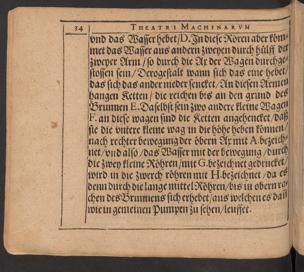 34 THEATRI MACHINARVM
vnd das Wasser hebet / D. In diese Rören aber köm-
met das Wasser aus andern zweyen durch hülff der
zweyer Arm / so durch die Ax der Wagen durchge-
stossen sein / Dergestalt wann sich das eine hebet /
das sich das ander nider sencket. An diesen Armen
hangen Ketten / die reichen bis an den grund des
Brunnen E. Daselbst sein zwo andere kleine Wagen
F. an diese wagen sind die Ketten angehencket / das
sie die vntere kleine wag in die höhe heben können /
nach rechter bewegung der öbern Ax mit A. bezeich-
net / vnd also / das Wasser mit der bewegung / durch
die zwey kleine Röhren / mit G. bezeichnet gedrucket
wird in die zwerch röhren mit H. bezeichnet / da es
denn durch die lange mittel Röhren / bis in obern ra-
chen des Brunnens sich erhebet / aus welchen es dann
wie in gemeinen Pumpen zu sehen / leuffet.